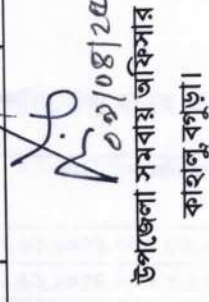 ০৭/০৪/২৫
উপজেলা সমবায় অফিসার
কাহালু, বগুড়া।